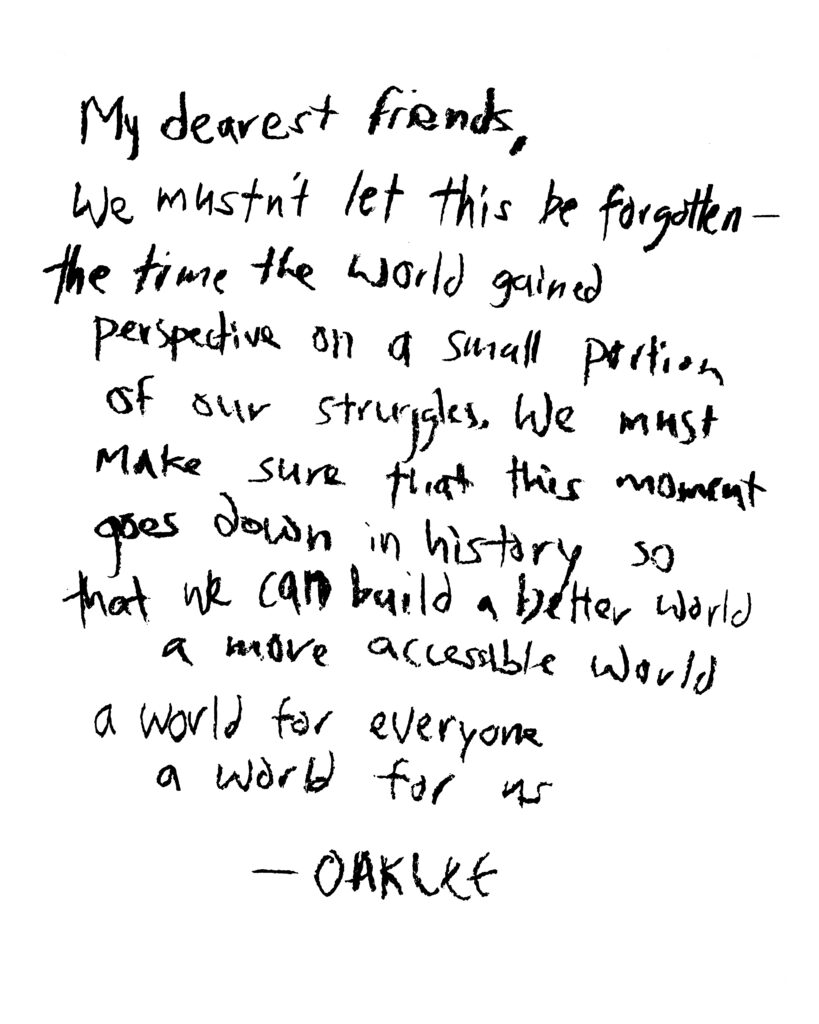 My dearest friends,
We mustn't let this be forgotten—
the time the world gained
perspective on a small portion
of our struggles. We must
make sure that this moment
goes down in history so
that we can build a better world
a more accessible world
a world for everyone
a world for us
— OAKLEE